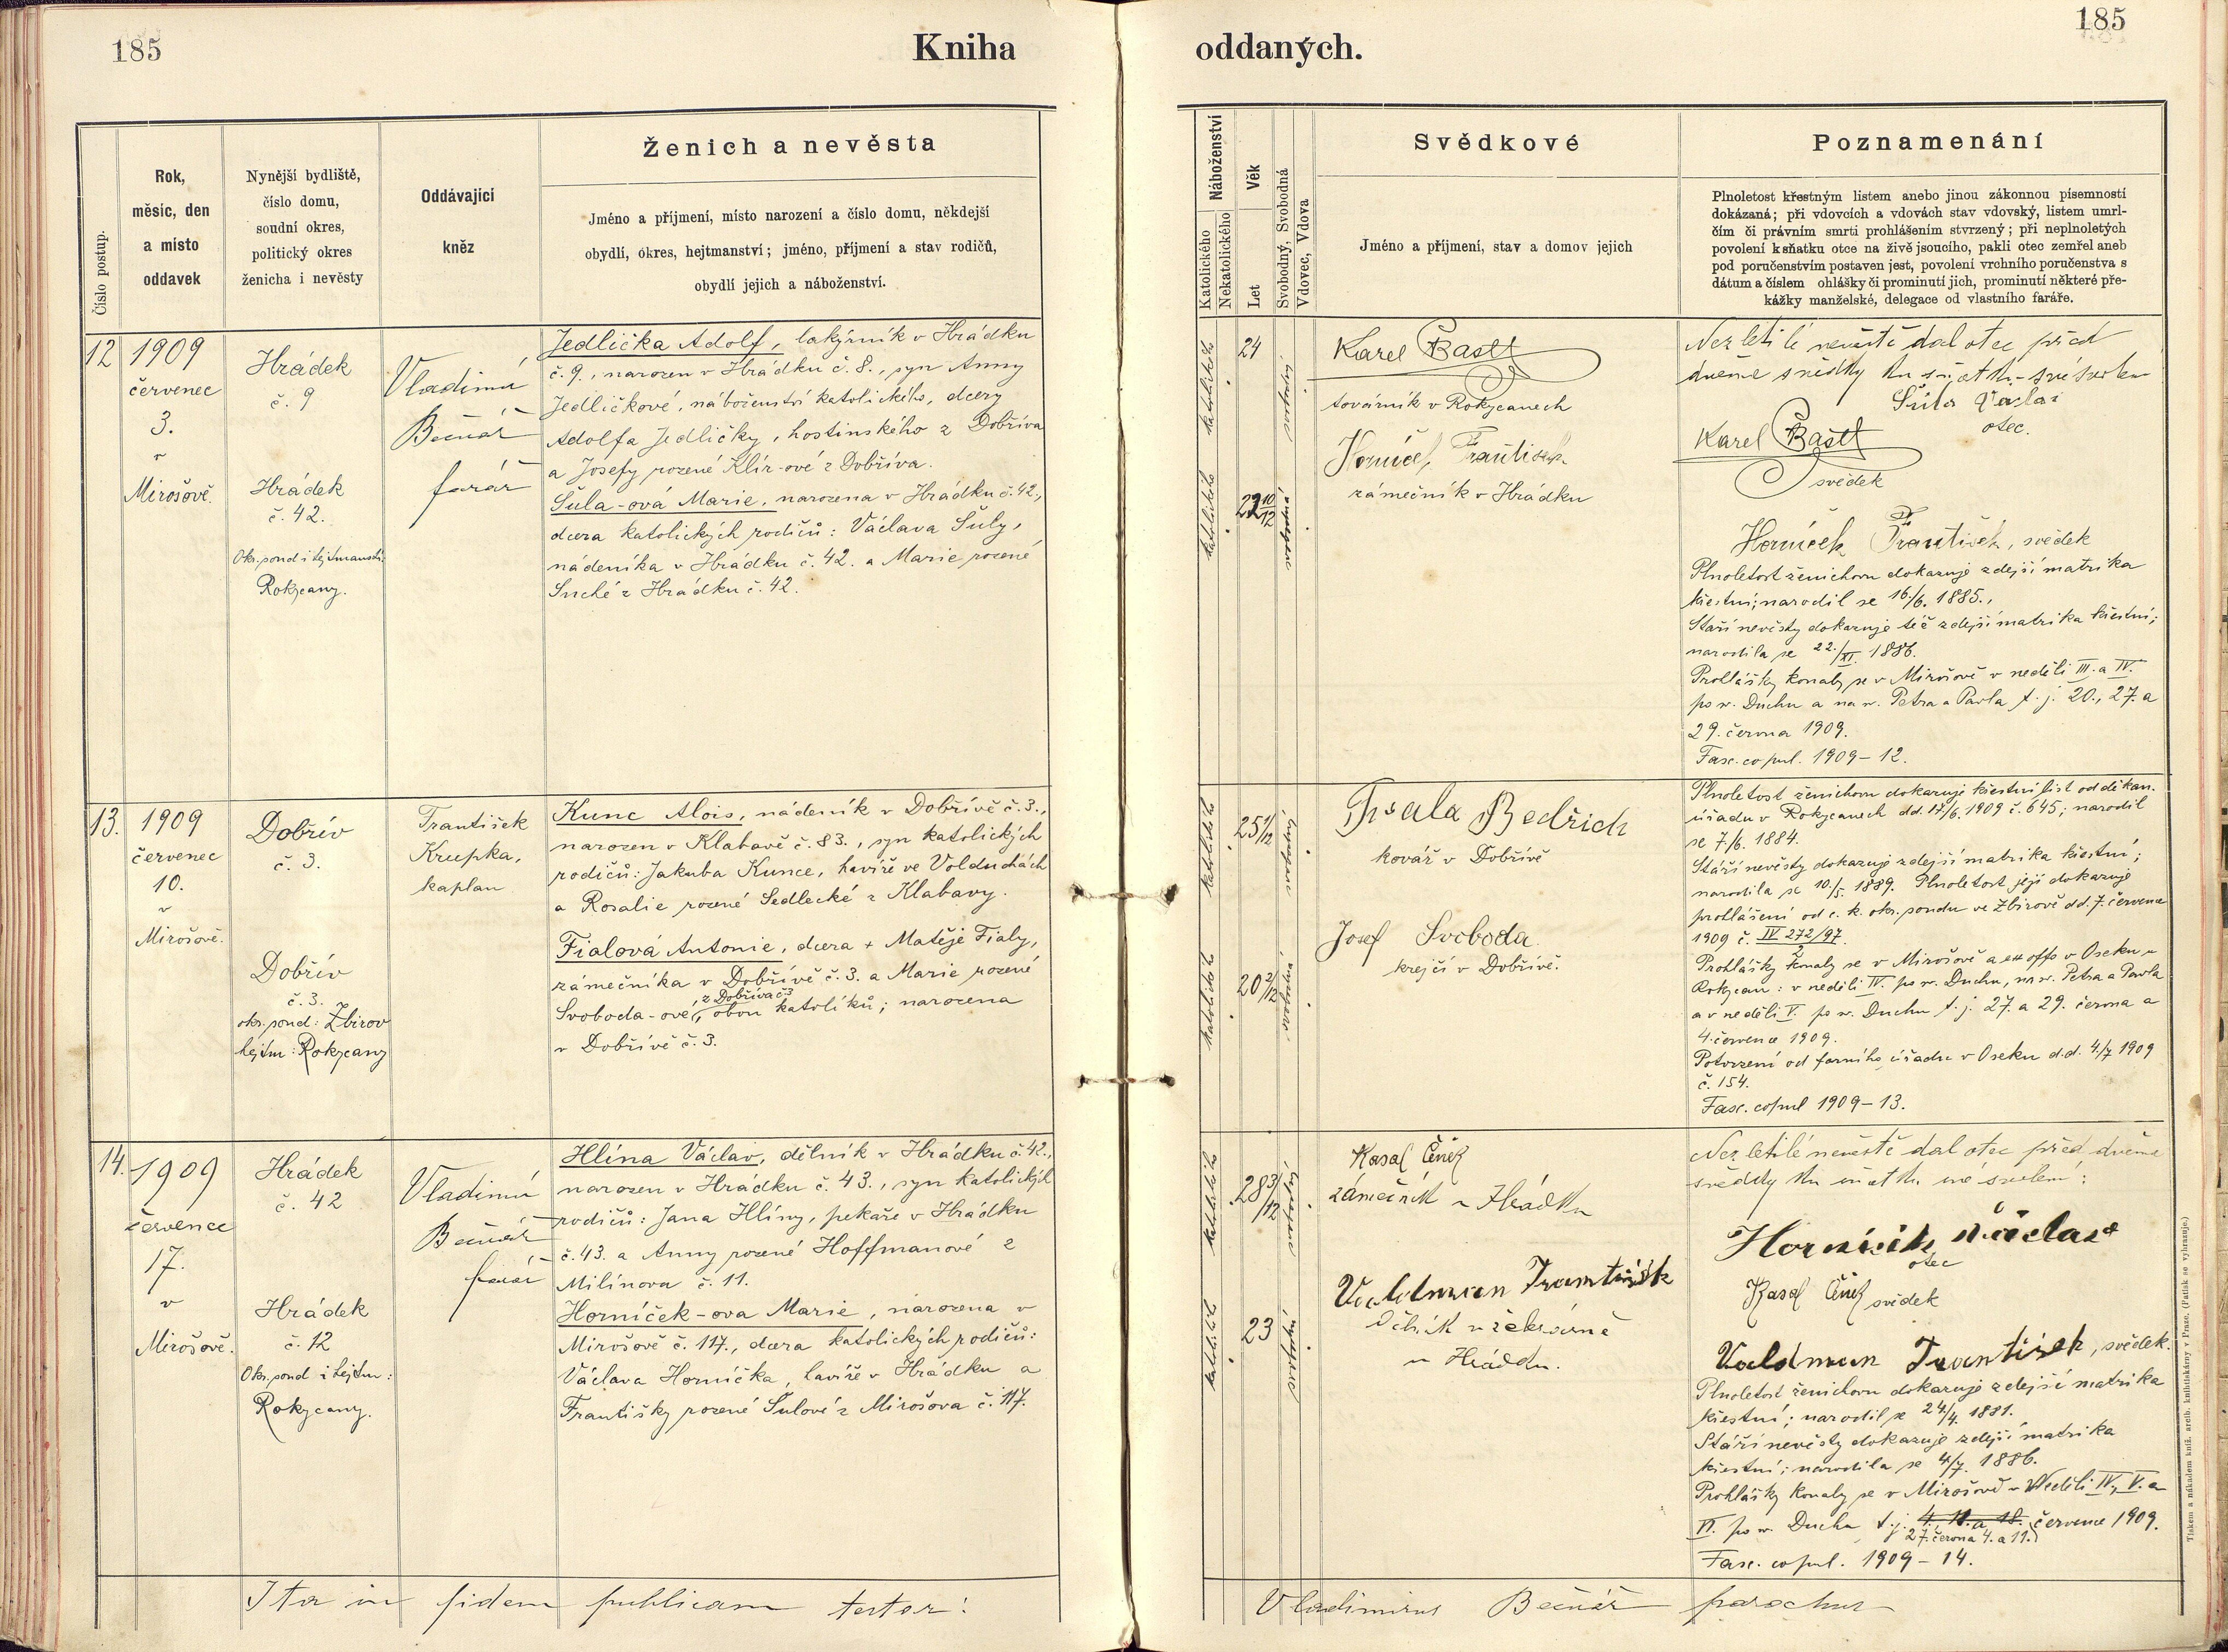 185
Kniha
oddaných.
185
Číslo postup.
Rok,
měsíc, den
a místo
oddavek
Nynější bydliště,
číslo domu,
soudní okres,
politický okres
ženicha i nevěsty
Oddávající
kněz
Ženich a nevěsta
Jméno a příjmení, místo narození a číslo domu, někdejší
obydlí, okres, hejtmanství; jméno, příjmení a stav rodičů,
obydlí jejich a náboženství.
Náboženství
Katolického
Nekatolického
Věk
Let
Svobodný, Svobodná
Vdovec, Vdova
Svědkové
Jméno a příjmení, stav a domov jejich
Poznamenání
Plnoletost křestným listem anebo jinou zákonnou písemností
dokázaná; při vdovcích a vdovách stav vdovský, listem umrl-
čím či právním smrti prohlášením stvrzený; při neplnoletých
povolení k sňatku otce na živě jsoucího, pakli otec zemřel aneb
pod poručenstvím postaven jest, povolení vrchního poručenstva s
dátum a číslem ohlášky či prominutí jich, prominutí některé pře-
kážky manželské, delegace od vlastního faráře.
12
1909
červenec
3.
v
Mirošově.
Hrádek
č. 9
Hrádek
č. 42.
Okr. soud i hejtmanství:
Rokycany.
Vladimír
Bečvář
farář
Jedlička Adolf, lakýrník v Hrádku
č. 9., narozen v Hrádku č. 8., syn Anny
Jedličkové, náboženství katolického, dcery
Adolfa Jedličky, hostinského z Dobříva
a Josefy rozené Klír-ové z Dobříva.
Šula-ová Marie, narozena v Hrádku č. 42.,
dcera katolických rodičů: Václava Šuly,
nádeníka v Hrádku č. 42. a Marie rozené
Suché z Hrádku č. 42.
katolického
24
katolického
22 10/12
Karel Bastl
továrník v Rokycanech
Horníček František
zámečník v Hrádku
Nezletilé nevěstě dal otec před
dvěma svědky ku sňatku své svolení
Šula Václav
otec.
Karel Bastl
svědek
Horníček František, svědek
Plnoletost ženichovu dokazuje zdejší matrika
křestní; narodil se 16./6. 1885.,
Stáří nevěsty dokazuje též zdejší matrika křestní;
narodila se 22./XI. 1886.
Prohlášky konaly se v Mirošově v neděli III. a IV.
po sv. Duchu a na sv. Petra a Pavla t. j. 20., 27. a
29. června 1909.
Fasc. copul. 1909 - 12.
13.
1909
červenec
10.
v
Mirošově.
Dobřív
č. 3.
Dobřív
č. 3.
okr. soud: Zbirov
hejtm: Rokycany
František
Krupka,
kaplan
Kunc Alois, nádeník v Dobřívě č. 3.,
narozen v Klabavě č. 83., syn katolických
rodičů: Jakuba Kunce, havíře ve Volduchách
a Rosalie rozené Sedlecké z Klabavy.
Fialová Antonie, dcera + Matěje Fialy,
zámečníka v Dobřívě č. 3. a Marie rozené
Svoboda-ové, z Dobříva č. 3 obou katolíků; narozena
v Dobřívě č. 3.
katolického
25 1/12
katolického
20 2/12
Fiala Bedřich
kovář v Dobřívě
Josef Svoboda
krejčí v Dobřívě.
Plnoletost ženichovu dokazuje křestní list od děkan.
úřadu v Rokycanech dd. 17./6. 1909 č. 645; narodil
se 7/6. 1884.
Stáří nevěsty dokazuje zdejší matrika křestní;
narodila se 10./5. 1889. Plnoletost její dokazuje
prohlášení od c. k. okr. soudu ve Zbirově dd. 7. července
1909 č. IV 272/97
2
Prohlášky konaly se v Mirošově a ex offo v Oseku a
Rokycan: v neděli IV. po sv. Duchu, na sv. Petra a Pavla
a v neděli V. po sv. Duchu t. j. 27. a 29. června a
4. července 1909.
Potvrzení od farního úřadu v Oseku d.d. 4./7. 1909
č. 154.
Fasc. copul 1909 - 13.
14.
1909
července
17.
v
Mirošově.
Hrádek
č. 42
Hrádek
č. 12
Okr. soud i hejtm:
Rokycany.
Vladimír
Bečvář
farář
Hlína Václav, dělník v Hrádku č. 42.,
narozen v Hrádku č. 43., syn katolických
rodičů: Jana Hlíny, pekaře v Hrádku
č. 43. a Anny rozené Hoffmanové z
Milínova č. 11.
Horníček-ova Marie, narozena v
Mirošově č. 117., dcera katolických rodičů:
Václava Horníčka, havíře v Hrádku a
Františky rozené Šulové z Mirošova č. 117.
katolického
28 3/12
23
Kasal Čeněk
zámečník v Hrádku
Valdman František
v Hrádku.
Nezletilé nevěstě dal otec před dvěma
svědky ku sňatku své svolení:
Horníček Václav
otec
Kasal Čeněk svědek
Valdman František, svědek.
Plnoletost ženichovu dokazuje zdejší matrika
křestní; narodil se 24/4. 1881.
Stáří nevěsty dokazuje zdejší matrika
křestní; narodila se 4/7. 1886.
Prohlášky konaly se v Mirošově v Neděli IV., V. a
VI. po sv. Duchu t. j. 4., 11. a 18. července 1909.
27. června 4. a 11.
Fasc. copul. 1909 - 14.
Ita in fidem publicam testor:
Vladimirus Bečvář parochus
Tiskem a nákladem kníž. arcib. knihtiskárny v Praze. (Patisk se vyhrazuje.)